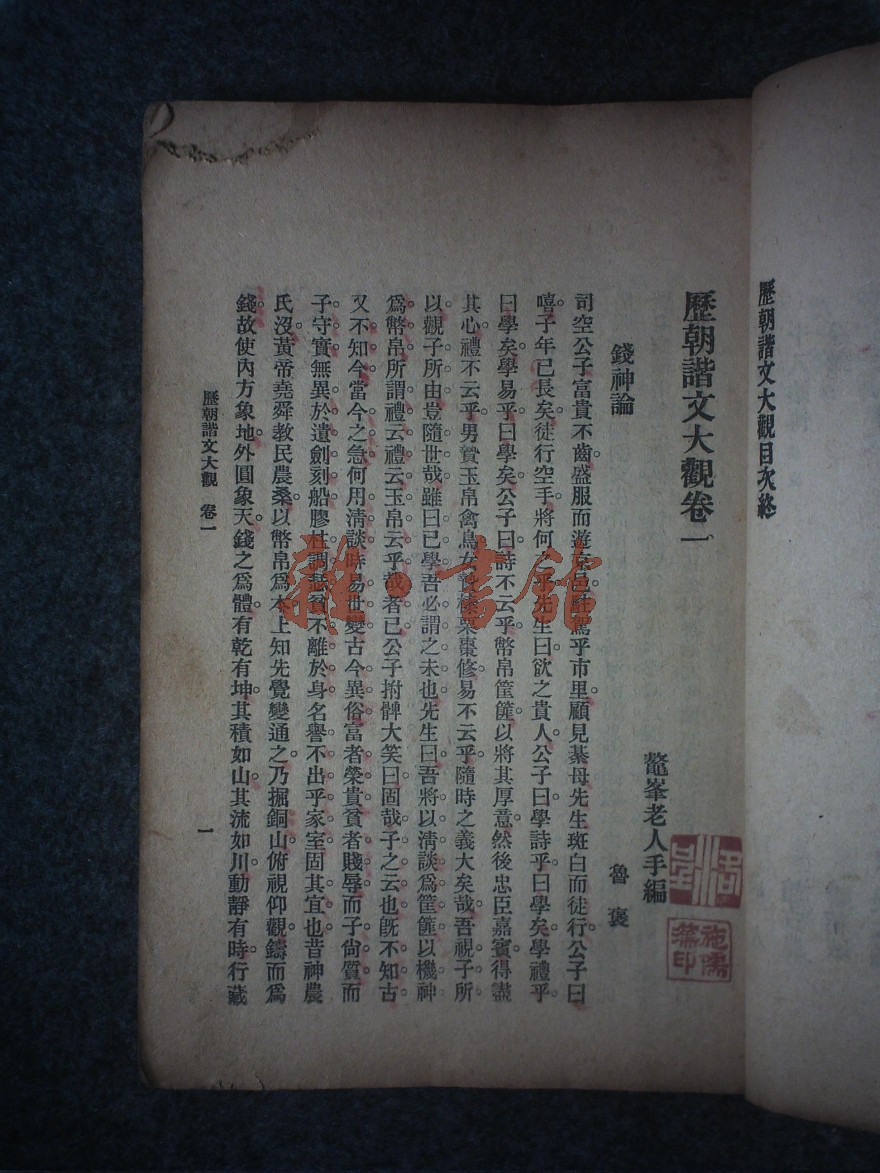 歷朝諧文大觀目次終
歷朝諧文大觀卷一
鼇峯老人手編
錢神論
魯褒
司空公子富貴不齒。盛服而遊京邑。駐駕乎市里。顧見綦母先生斑白而徒行。公子曰
嘻。子年已長矣。徒行空手。將何之乎。先生曰。欲之貴人。公子曰。學詩乎。曰。學矣。學禮乎。
曰。學矣。學易乎。曰。學矣。公子曰。詩不云乎。幣帛筐篚。以將其厚意。然後忠臣嘉賓。得盡
其心。禮不云乎。男贄玉帛禽鳥。女贄榛栗棗修。易不云乎。隨時之義大矣哉。吾視子所
以。觀子所由。豈隨世哉。雖曰已學。吾必謂之未也。先生曰。吾將以清談爲筐篚。以機神
爲幣帛。所謂禮云禮云。玉帛云乎哉者已。公子拊髀大笑曰。固哉子之云也。旣不知古。
又不知今。當今之急。何用清談。時易世變。古今異俗。富者榮貴。貧者賤辱。而子尚質。而
子守實。無異於遺劍刻船。膠柱調瑟。貧不離於身。名譽不出乎家室。固其宜也。昔神農
氏沒。黃帝堯舜敎民農桑。以幣帛爲本。上智先覺變通之。乃掘銅山。俯視仰觀。鑄而爲
錢。故使內方象地。外圓象天。錢之爲體。有乾有坤。其積如山。其流如川。動靜有時。行藏
歷朝諧文大觀 卷一
一
雜·書館